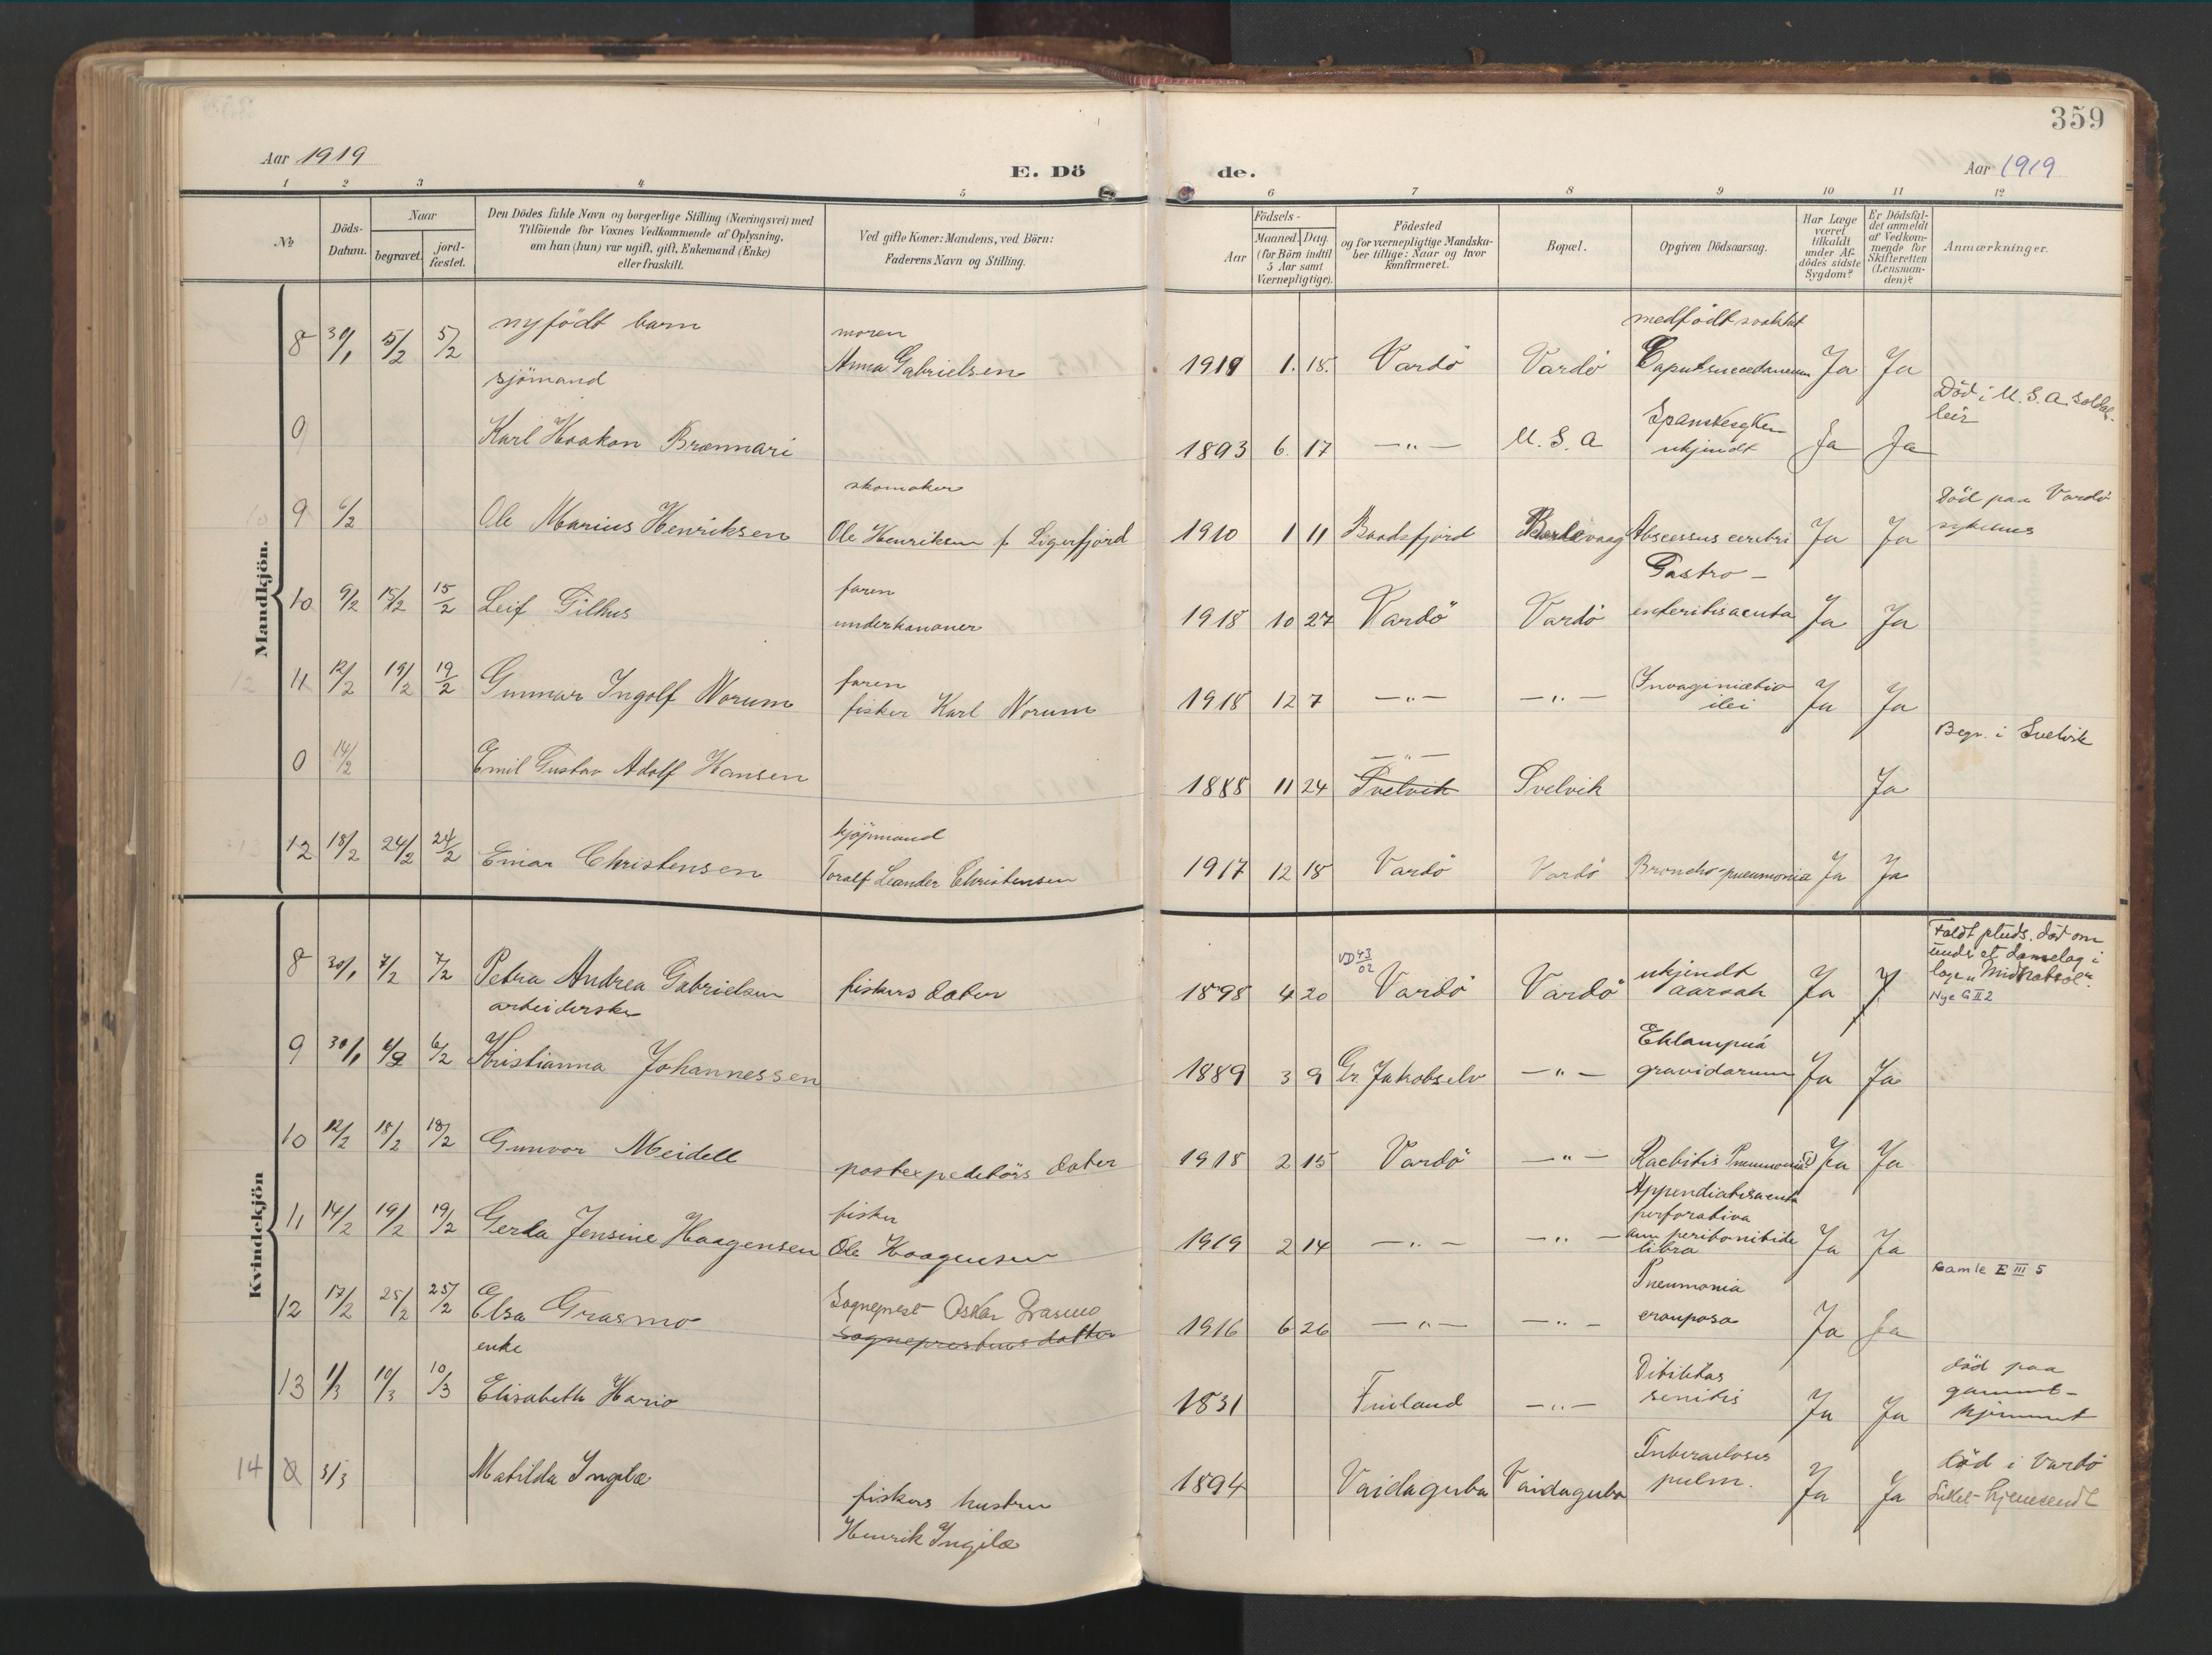 359
Aar 1919
E. Dö
de.
Aar 1919
1 2 3 4 5 6 7 8 9 10 11 12
№
Döds-
Datum.
Naar
begravet.
jord-
fæstet.
Den Dödes fulde Navn og borgerlige Stilling (Næringsvei) med
Tilföiende for Voxnes Vedkommende af Oplysning,
om han (hun) var ugift, gift, Enkemand (Enke)
eller fraskilt.
Ved gifte Koner: Mandens, ved Börn:
Faderens Navn og Stilling.
Födsels-
Aar
Maaned. Dag.
(for Börn indtil
5 Aar samt
Værnepligtige).
Födested
og for værnepligtige Mandska-
ber tillige: Naar og hvor
konfirmeret.
Bopæl.
Opgiven Dödsaarsag.
Har Læge
været
tilkaldt
under Af-
dödes sidste
Sygdom?
Er Dödsfal-
det anmeldt
af Vedkom-
mende for
Skifteretten
(Lensman-
den)?
Anmærkninger.
Mandkjön.
8 30/1 5/2 5/2 nyfödt barn
moren
Anna Gabrielsen
1919 1. 18. Vardö Vardö
medfödt svakhet
Caput succedaneum Ja Ja
sjömand
0 Karl Haakon Brannari
1893 6. 17 —"— U. S. A
Spanskesyken
ukjendt Ja Ja
Död i U. S. A. soldat-
leir
9 6/2 Ole Marius Henriksen
skomaker
Ole Henriksen f Ligerfjord
1910 1 11 Baadsfjord Berlevaag Abscessus cerebri Ja Ja
Död paa Vardö
sykehus
10 9/2 15/2 15/2 Leif Gilhus
faren
underkanoner
1918 10 27 Vardö Vardö
Gastro-
enteritis acuta Ja Ja
11 12/2 19/2 19/2 Gunnar Ingolf Norum
faren
fisker Karl Norum
1918 12 7 —"— —"—
Invaginatio
ilei Ja Ja
0 14/2 Emil Gustav Adolf Hansen
1888 11 24
—"—
Svelvik Svelvik Ja
Begr. i Svelvik
12 18/2 24/2 24/2 Einar Christensen
kjöpmand
Toralf Leander Christensen
1917 12 18 Vardö Vardö Broncho-pneumonia Ja Ja
Kvindekjön
8 30/1 7/2 7/2 Petra Andrea Gabrielsen
fiskers datter
VD 43/02
1898 4 20 Vardö Vardö
ukjendt
aarsak Ja J
Faldt pluds. död om
under et danselag i
loge „Midnatsol".
Nye G II 2
arbeiderske
9 30/1 6/2 6/2 Kristianna Johannessen
1889 3 9 Gr. Jakobselv —"—
Eklampsia
gravidarum Ja Ja
10 12/2 18/2 18/2 Gunvor Meidell
postexpeditörs datter
1918 2 15 Vardö —"— Rachitis Pneumonia Ja Ja
11 14/2 19/2 19/2 Gerda Jensine Haagensen
fisker
Ole Haagensen
1919 2 14 —"— —"—
Appendicitis acuta
perforativa
cum peritonitide
libra Ja Ja
12 17/2 25/2 25/2 Elsa Grasmo
Sogneprest Oskar Grasmo
sogneprestens datter
1916 6 26 —"— —"—
Pneumonia
crouposa Ja Ja
Gamle E III 5
enke
13 1/3 10/3 10/3 Elisabeth Hario
1831 Finland —"—
Debilitas
senilis Ja Ja
död paa
gamle-
hjemmet
14 0 3/3 Matilda Ingila
fiskers hustru
Henrik Ingila
1894 Vaidaguba Vaidaguba
Tuberculosis
pulm. Ja Ja
död i Vardö
Liket hjemsendt